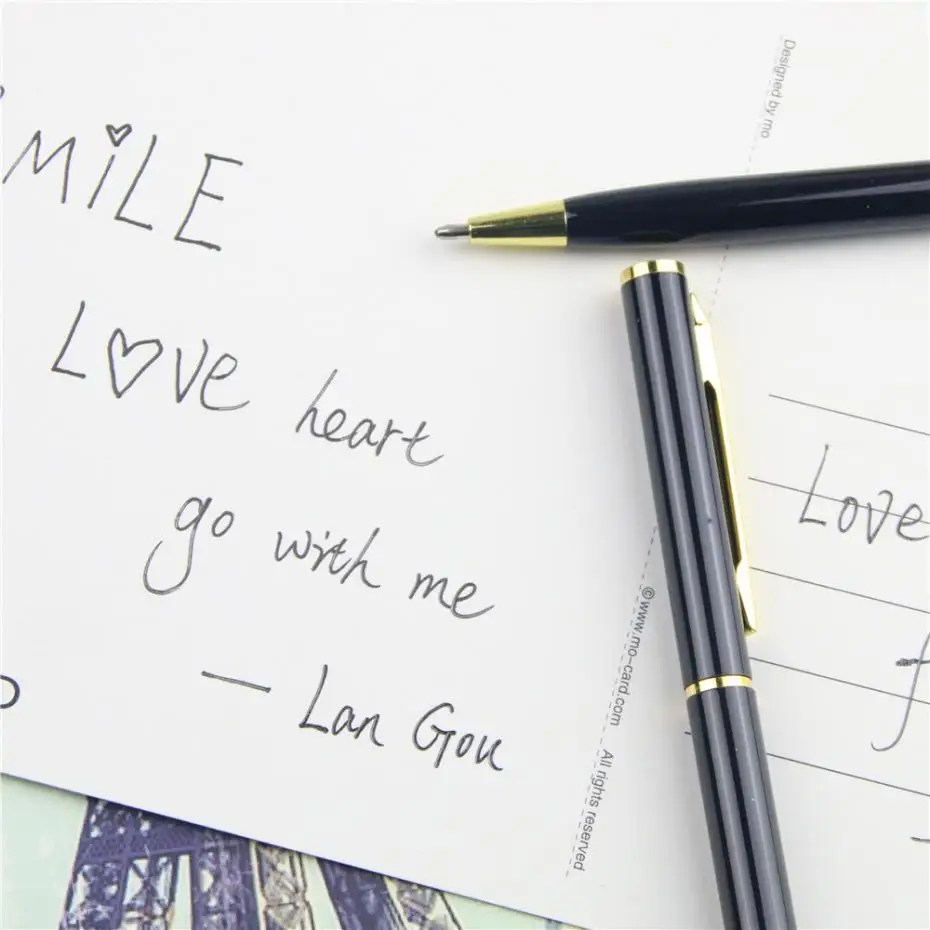 MiLE
LOVE heart
go with me
— Lan Gou
Designed by mo
©www.mo-card.com All rights reserved
Love
f